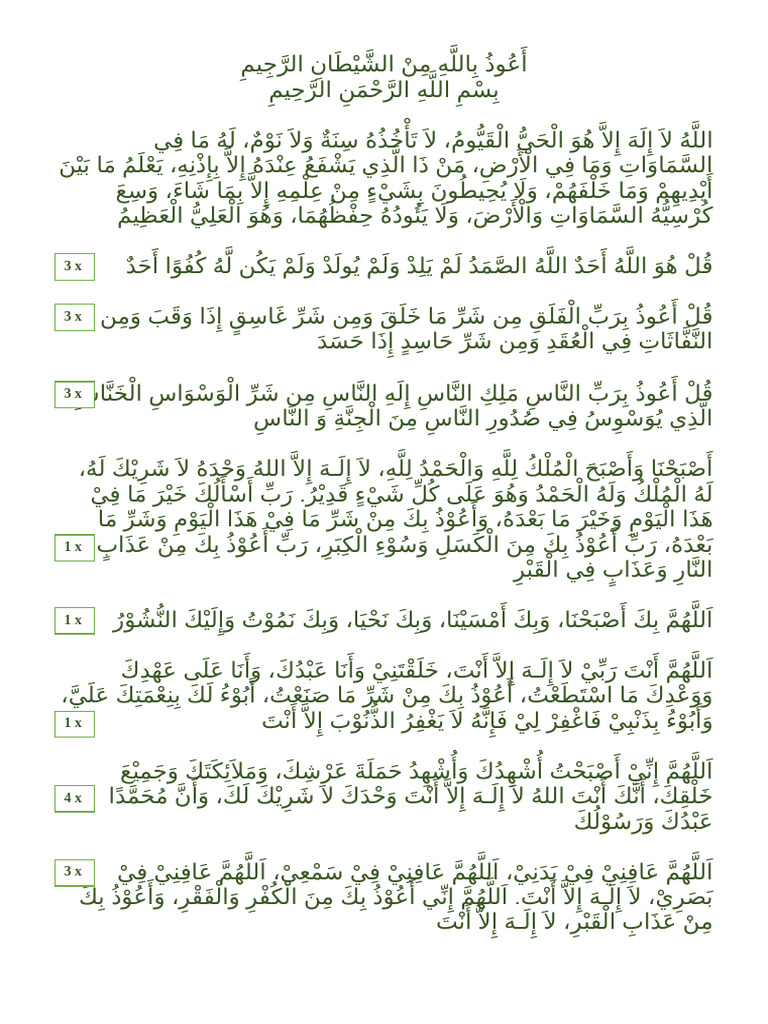 أَعُوذُ بِاللَّهِ مِنْ الشَّيْطَانِ الرَّجِيمِ
بِسْمِ اللَّهِ الرَّحْمَنِ الرَّحِيمِ
اللَّهُ لاَ إِلَهَ إِلاَّ هُوَ الْحَيُّ الْقَيُّومُ، لاَ تَأْخُذُهُ سِنَةٌ وَلاَ نَوْمٌ، لَهُ مَا فِي
السَّمَاوَاتِ وَمَا فِي الْأَرْضِ، مَنْ ذَا الَّذِي يَشْفَعُ عِنْدَهُ إِلاَّ بِإِذْنِهِ، يَعْلَمُ مَا بَيْنَ
أَيْدِيهِمْ وَمَا خَلْفَهُمْ، وَلَا يُحِيطُونَ بِشَيْءٍ مِنْ عِلْمِهِ إِلاَّ بِمَا شَاءَ، وَسِعَ
كُرْسِيُّهُ السَّمَاوَاتِ وَالْأَرْضَ، وَلَا يَئُودُهُ حِفْظُهُمَا، وَهُوَ الْعَلِيُّ الْعَظِيمُ
قُلْ هُوَ اللَّهُ أَحَدٌ اللَّهُ الصَّمَدُ لَمْ يَلِدْ وَلَمْ يُولَدْ وَلَمْ يَكُن لَّهُ كُفُوًا أَحَدٌ 3 x
قُلْ أَعُوذُ بِرَبِّ الْفَلَقِ مِن شَرِّ مَا خَلَقَ وَمِن شَرِّ غَاسِقٍ إِذَا وَقَبَ وَمِن 3 x
النَّفَّاثَاتِ فِي الْعُقَدِ وَمِن شَرِّ حَاسِدٍ إِذَا حَسَدَ
قُلْ أَعُوذُ بِرَبِّ النَّاسِ مَلِكِ النَّاسِ إِلَهِ النَّاسِ مِن شَرِّ الْوَسْوَاسِ الْخَنَّاسِ 3 x
الَّذِي يُوَسْوِسُ فِي صُدُورِ النَّاسِ مِنَ الْجِنَّةِ وَ النَّاسِ
أَصْبَحْنَا وَأَصْبَحَ الْمُلْكُ لِلَّهِ وَالْحَمْدُ لِلَّهِ، لاَ إِلَـهَ إِلاَّ اللهُ وَحْدَهُ لاَ شَرِيْكَ لَهُ،
لَهُ الْمُلْكُ وَلَهُ الْحَمْدُ وَهُوَ عَلَى كُلِّ شَيْءٍ قَدِيْرُ. رَبِّ أَسْأَلُكَ خَيْرَ مَا فِيْ
هَذَا الْيَوْمِ وَخَيْرَ مَا بَعْدَهُ، وَأَعُوْذُ بِكَ مِنْ شَرِّ مَا فِيْ هَذَا الْيَوْمِ وَشَرِّ مَا
بَعْدَهُ، رَبِّ أَعُوْذُ بِكَ مِنَ الْكَسَلِ وَسُوْءِ الْكِبَرِ، رَبِّ أَعُوْذُ بِكَ مِنْ عَذَابٍ 1 x
النَّارِ وَعَذَابٍ فِي الْقَبْرِ
اَللَّهُمَّ بِكَ أَصْبَحْنَا، وَبِكَ أَمْسَيْنَا، وَبِكَ نَحْيَا، وَبِكَ نَمُوْتُ وَإِلَيْكَ النُّشُوْرُ 1 x
اَللَّهُمَّ أَنْتَ رَبِّيْ لاَ إِلَـهَ إِلاَّ أَنْتَ، خَلَقْتَنِيْ وَأَنَا عَبْدُكَ، وَأَنَا عَلَى عَهْدِكَ
وَوَعْدِكَ مَا اسْتَطَعْتُ، أَعُوْذُ بِكَ مِنْ شَرِّ مَا صَنَعْتُ، أَبُوْءُ لَكَ بِنِعْمَتِكَ عَلَيَّ،
وَأَبُوْءُ بِذَنْبِيْ فَاغْفِرْ لِيْ فَإِنَّهُ لاَ يَغْفِرُ الذُّنُوْبَ إِلاَّ أَنْتَ 1 x
اَللَّهُمَّ إِنِّيْ أَصْبَحْتُ أُشْهِدُكَ وَأُشْهِدُ حَمَلَةَ عَرْشِكَ، وَمَلاَئِكَتَكَ وَجَمِيْعَ
خَلْقِكَ، أَنَّكَ أَنْتَ اللهُ لاَ إِلَـهَ إِلاَّ أَنْتَ وَحْدَكَ لاَ شَرِيْكَ لَكَ، وَأَنَّ مُحَمَّدًا 4 x
عَبْدُكَ وَرَسُوْلُكَ
اَللَّهُمَّ عَافِنِيْ فِيْ بَدَنِيْ، اَللَّهُمَّ عَافِنِيْ فِيْ سَمْعِيْ، اَللَّهُمَّ عَافِنِيْ فِيْ 3 x
بَصَرِيْ، لاَ إِلَـهَ إِلاَّ أَنْتَ. اَللَّهُمَّ إِنِّي أَعُوْذُ بِكَ مِنَ الْكُفْرِ وَالْفَقْرِ، وَأَعُوْذُ بِكَ
مِنْ عَذَابِ الْقَبْرِ، لاَ إِلَـهَ إِلاَّ أَنْتَ